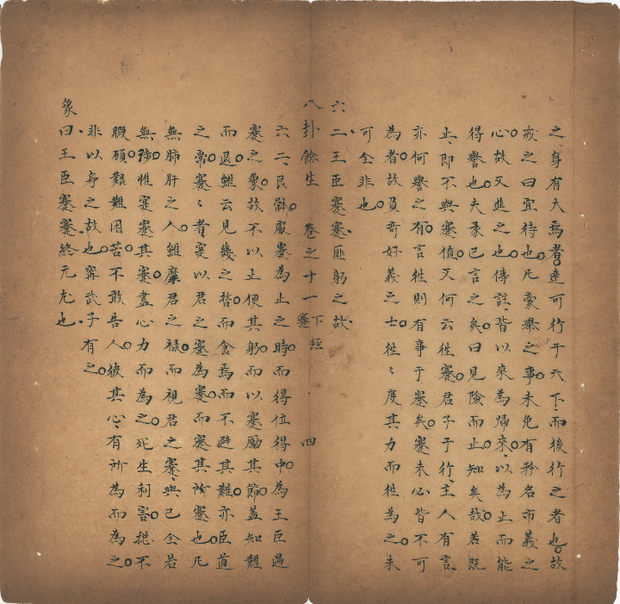 之身有大焉者達可行于天下而後行之者也故
戒之曰宜待也凡豪舉之事未免有矜名市義之
心故又進之也傳註皆以來為歸來以為止而能
得譽也夫彖已言之矣曰見險而止知矣哉若既
止即不與蹇值又何云徃蹇君子于行主人有言
亦何譽之有言徃則有事于蹇矣蹇未必皆不可
為者故負奇好義之士徃〻度其力而徃為之未
可全非也
六二王臣蹇蹇匪躬之故
八卦餘生 卷之十一 下經 蹇 四
六二艮體處蹇為止之時而得位得中為王臣遇
蹇之象故不以止便其躬而以蹇勵其節蓋知難
而退雖云見幾之哲而食焉而不避其難亦臣道
之常蹇〻者寔以君之蹇為蹇而蹇其所蹇也凡
無肺肝之人雖縻君之祿而視君之蹇與已全若
無涉惟蹇蹇其蹇盡心力而為之死生利害摠不
暇顧艱難困苦不敢告人彼其心有所為而為之
非以身之故也甯武子有之
象曰王臣蹇蹇終无尤也